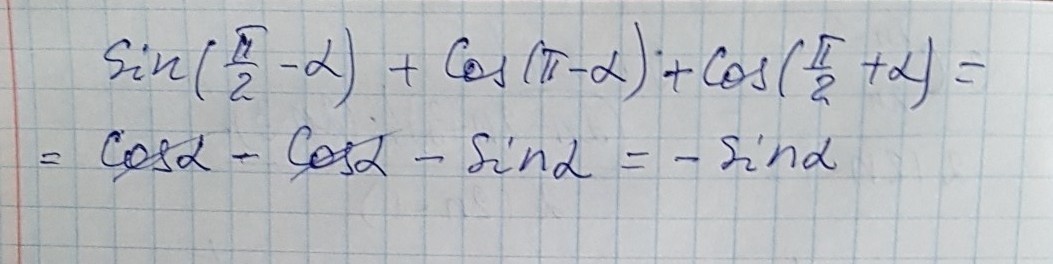 Sin(π/2 - α) + Cos(π-α) + Cos(π/2 + α) =
= Cosα - Cosα - Sinα = - Sinα